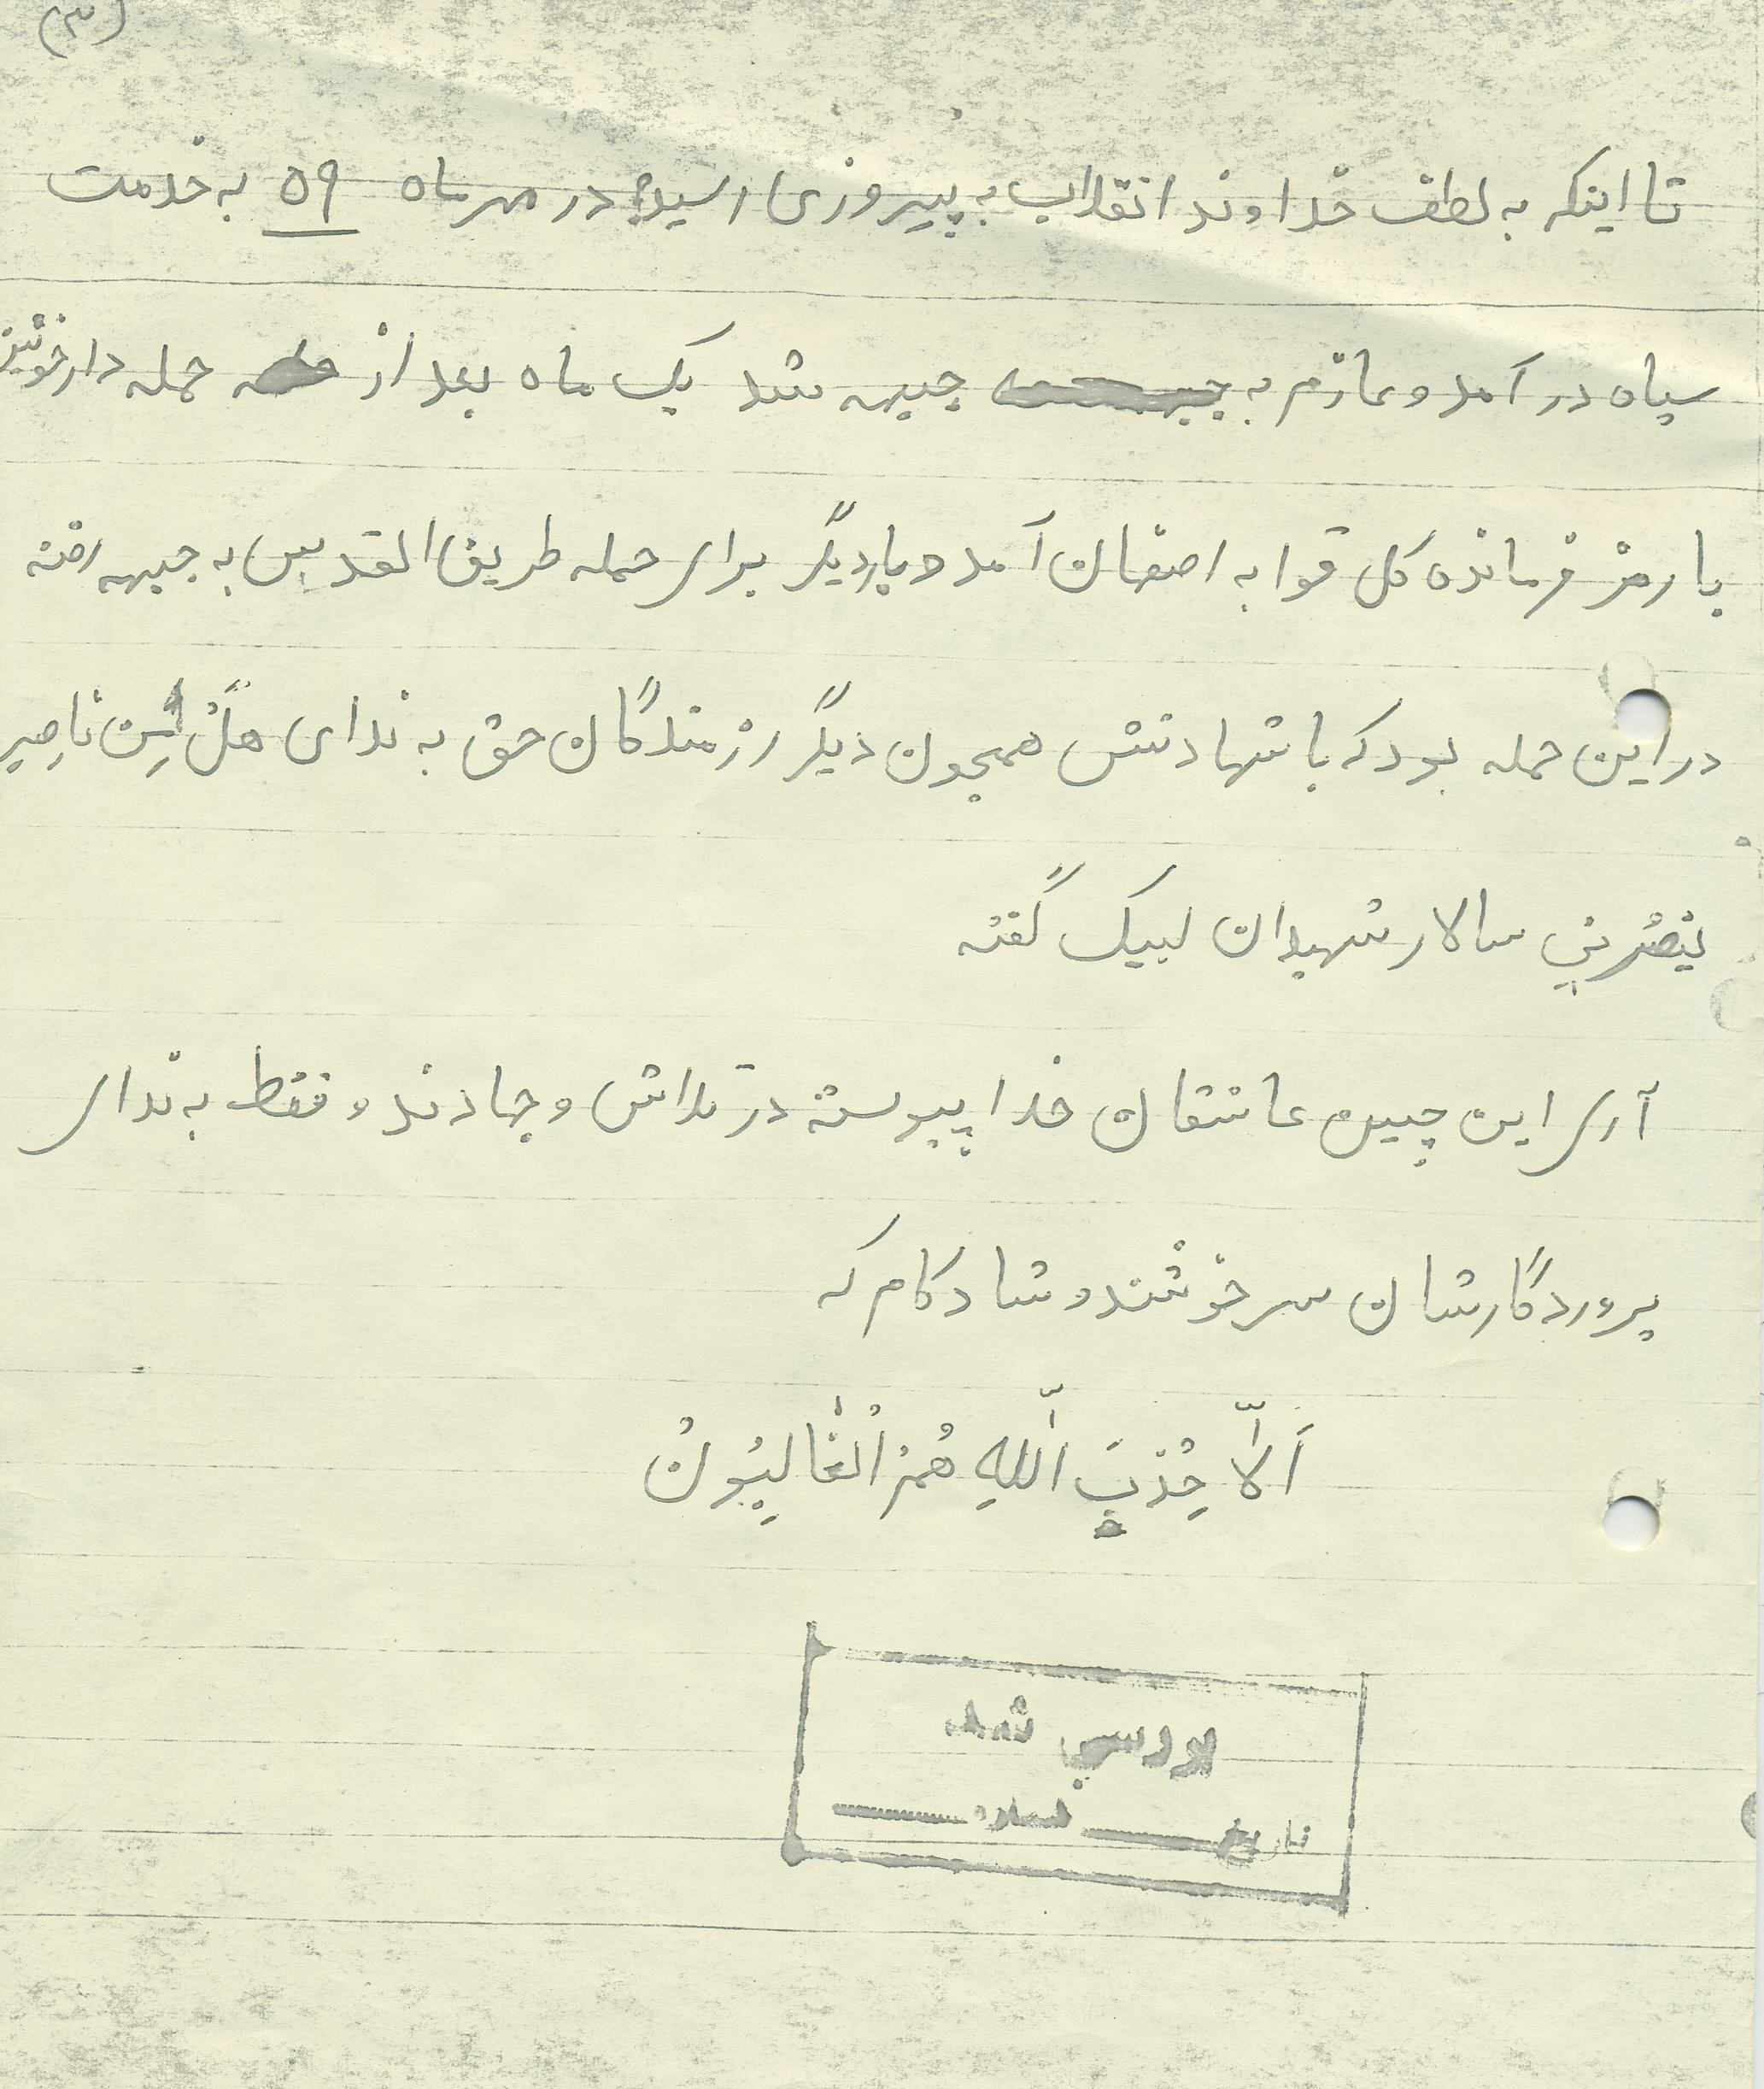 (۳)
تا اینکه به لطف خداوند انقلاب به پیروزی رسید در مهرماه ۵۹ به خدمت
سپاه در آمد و عازم به جبهه شد یک ماه بعد از حمله دارخوئین
با رمز فرمانده کل قوا به اصفهان آمد و بار دیگر برای حمله طریق القدس به جبهه رفته
در این حمله بود که با شهادتش همچون دیگر رزمندگان حق به ندای هَلْ مِن ناصِر
یَنصُرنی سالار شهیدان لبیک گفته
آری این چنین عاشقان خدا پیوسته در تلاش و جهادند و فقط به ندای
پروردگارشان سر خوشند و شادکام که
اَلاّ حِزْبَ اللّهِ هُمُ الْغٰالِبُونْ
بررسی شد
تاریخ شماره